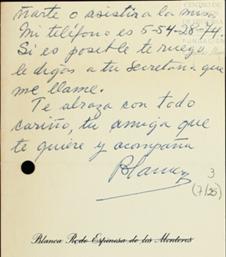 ñarte o asistir a la misa
Mi teléfono es 5-54-28-74.
Si es posible te ruego
le digas a tu Secretaria que
me llame.
Te abraza con todo
cariño, tu amiga que
te quiere y acompaña
Blanca
3
(7/25)
Blanca Rodo Espinosa de los Monteros